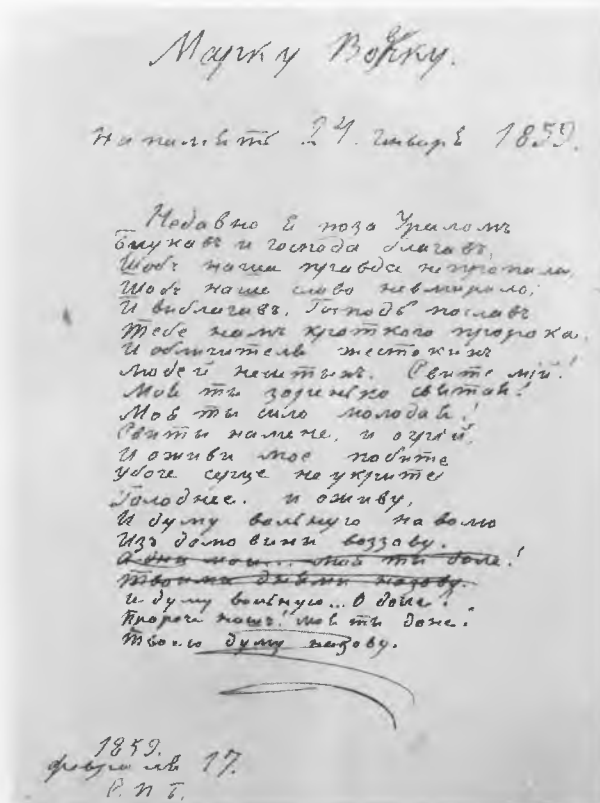 Марку Вовчку.
На память 24 генваря 1859.
Недавно я поза Ураломъ
блукавъ и господа благавъ,
Щобъ наша правда не пропала,
Щобъ наше слово невмирало;
И виблагавъ. Господь пославъ
Тебе намъ кроткого пророка
И обличителя жестокихъ
людей неситихъ. Свите мій!
Моя ти зоренько святая!
Моя ти сило молодая!
Свиты на мене, и огрій,
И оживи мое побите
убоге серце неукрите
Голоднее. и оживу,
И думу вольную на волю
Изъ домовини воззову.
А дни мои... мой ти доле!
Твоими днями назову.
И думу вольную... О доле!
Пророче нашъ! моя ти доню!
Твоею думу назову.
1859.
февраля 17.
С. П. Б.